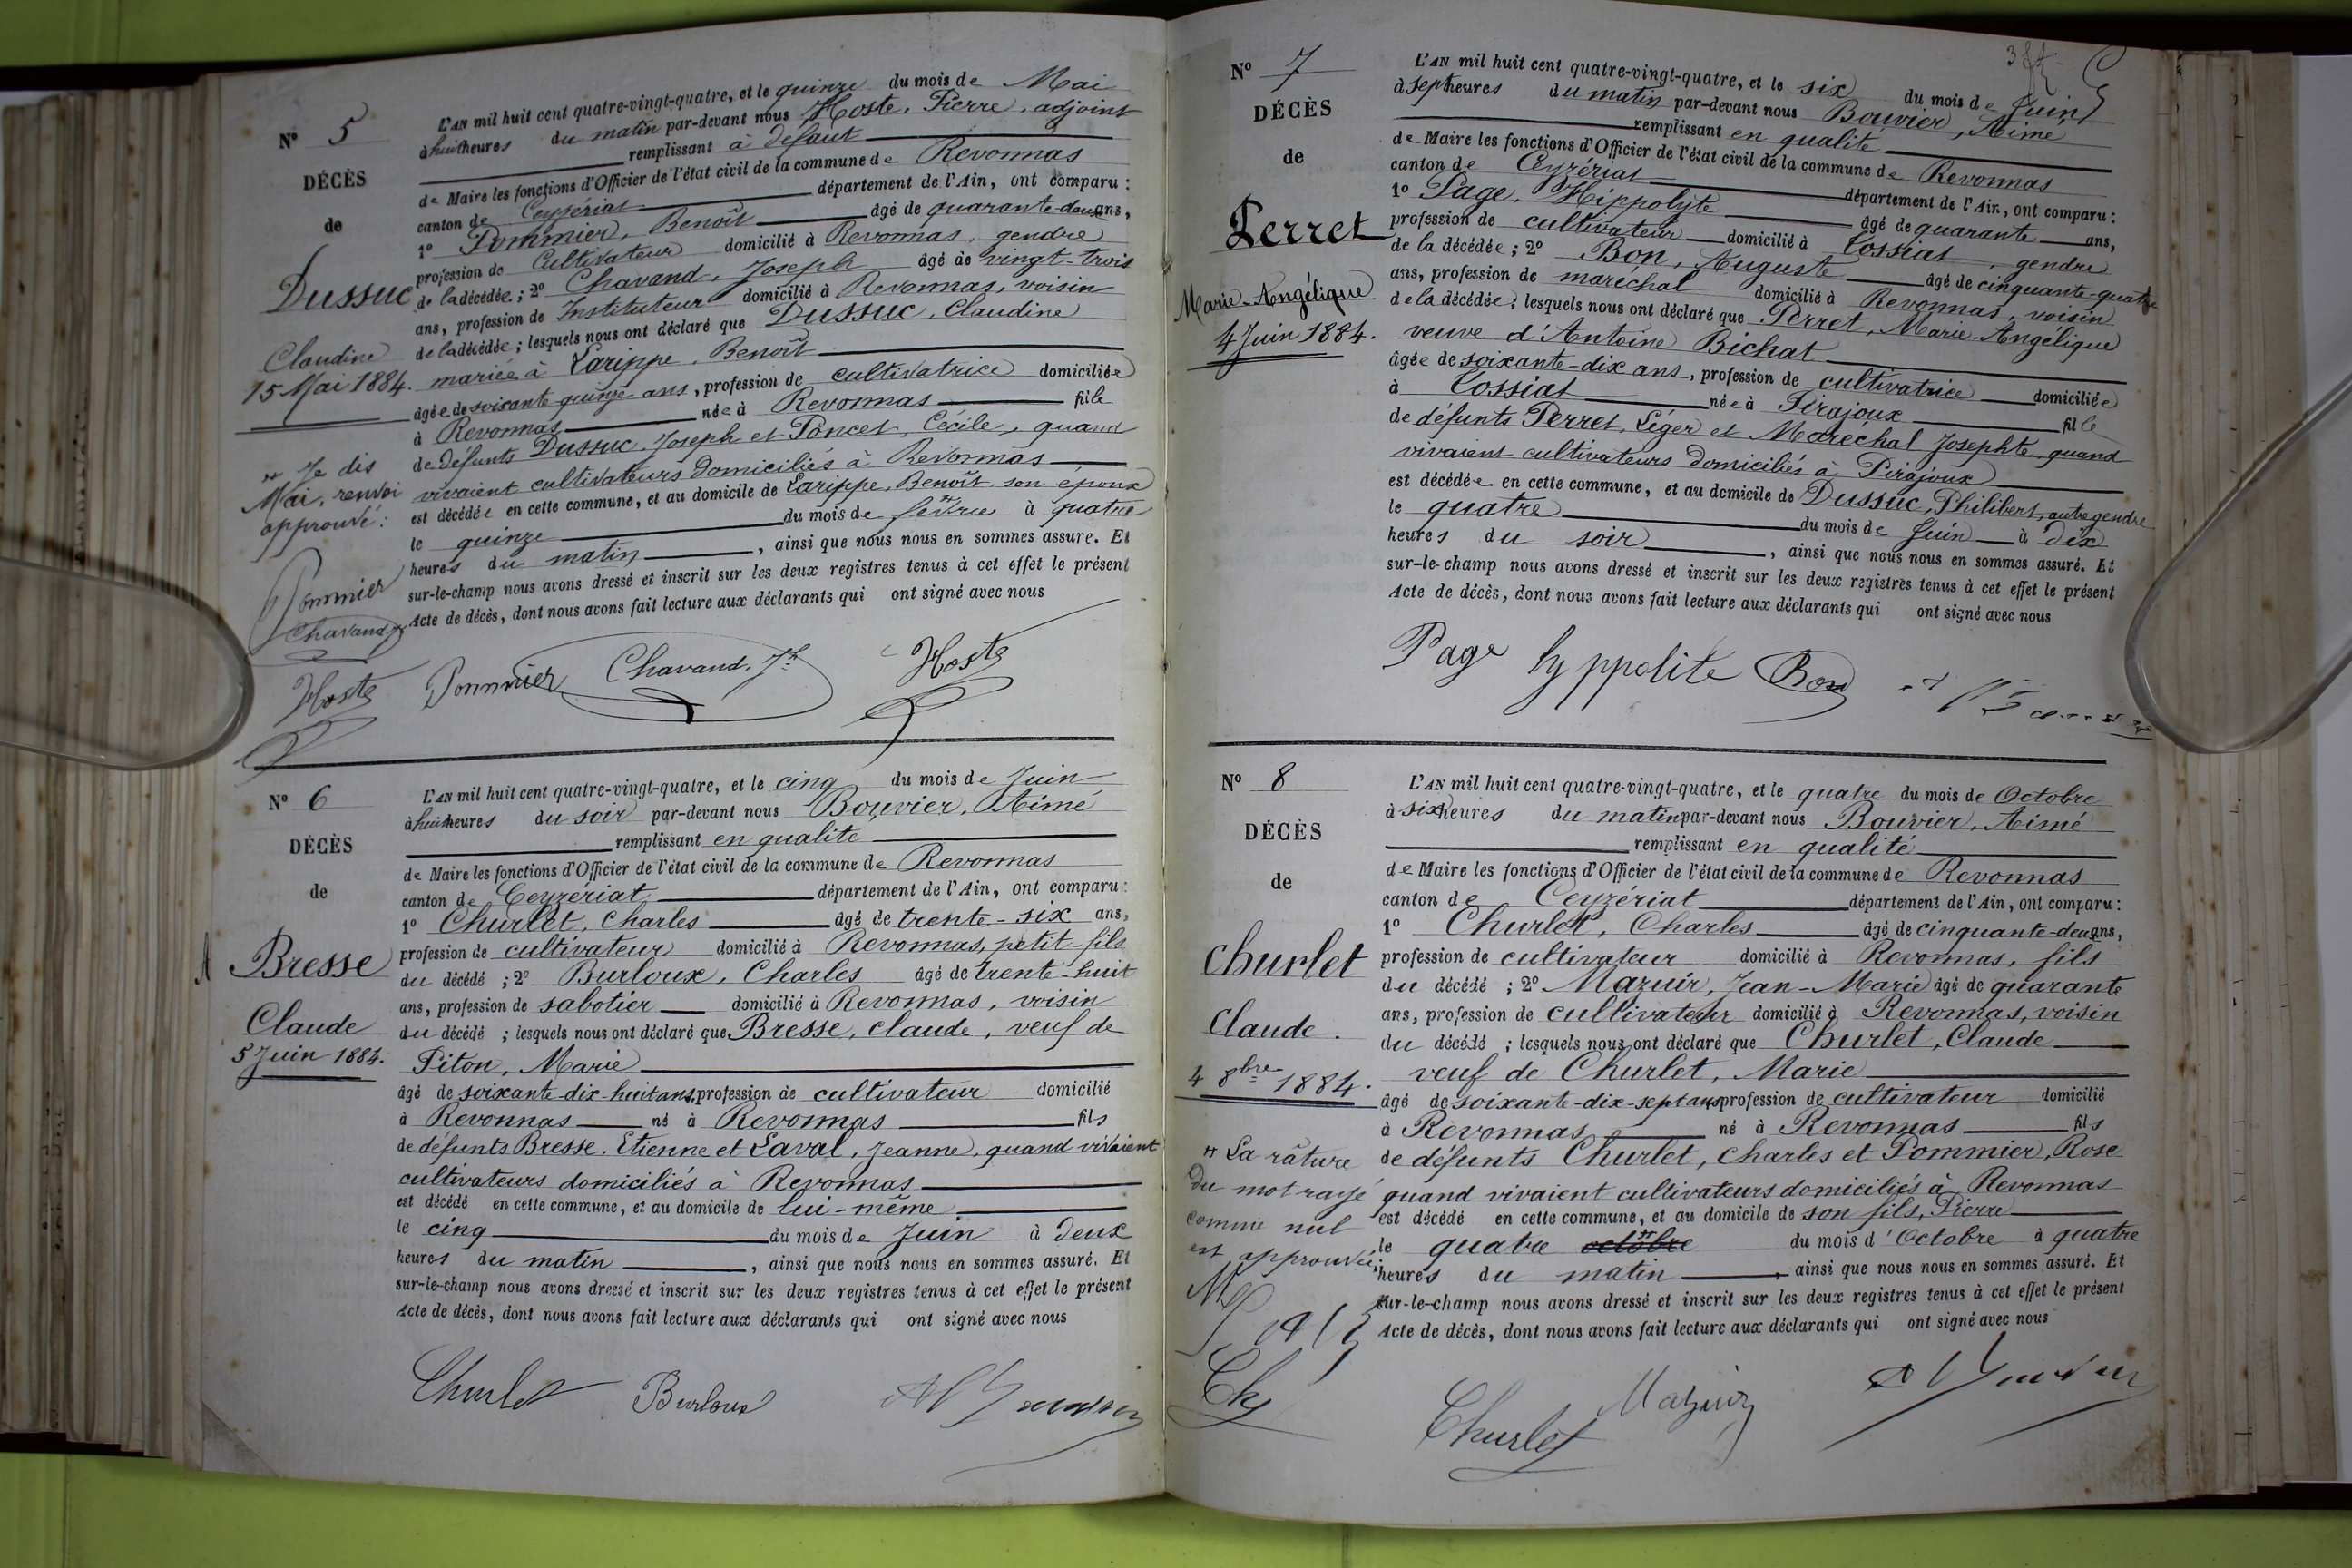 N° 5
DÉCÈS
de
Dussuc
Claudine
15 Mai 1884.
Je dis
Mai, renvoi
approuvé :
Pommier
Chavand
Hoste
L'AN mil huit cent quatre-vingt-quatre, et le quinze du mois de Mai
à huit heures du matin par-devant nous Hoste, Pierre, adjoint
remplissant à défaut
de Maire les fonctions d'Officier de l'état civil de la commune de Revonnas
canton de Ceyzériat département de l'Ain, ont comparu :
1° Pommier, Benoît âgé de quarante-deux ans,
profession de Cultivateur domicilié à Revonnas, gendre
de la décédée ; 2° Chavand, Joseph âgé de vingt-trois
ans, profession de Instituteur domicilié à Revonnas, voisin
de la décédée ; lesquels nous ont déclaré que Dussuc, Claudine
mariée à Larippe, Benoît
âgée de soixante quinze ans, profession de cultivatrice domiciliée
à Revonnas née à Revonnas fille
de défunts Dussuc, Joseph et Poncet, Cécile, quand
vivaient cultivateurs domiciliés à Revonnas
est décédée en cette commune, et au domicile de Larippe, Benoît son époux
le quinze du mois de à quatre
heures du matin, ainsi que nous nous en sommes assuré. Et
sur-le-champ nous avons dressé et inscrit sur les deux registres tenus à cet effet le présent
Acte de décès, dont nous avons fait lecture aux déclarants qui ont signé avec nous
Pommier Chavand, Jh Hoste
N° 6
DÉCÈS
de
Bresse
Claude
5 Juin 1884.
L'AN mil huit cent quatre-vingt-quatre, et le cinq du mois de Juin
à huit heures du soir par-devant nous Bouvier, Aimé
remplissant en qualité
de Maire les fonctions d'Officier de l'état civil de la commune de Revonnas
canton de Ceyzériat département de l'Ain, ont comparu :
1° Churlet, Charles âgé de trente-six ans,
profession de cultivateur domicilié à Revonnas, petit-fils
du décédé ; 2° Burloux, Charles âgé de trente-huit
ans, profession de sabotier domicilié à Revonnas, voisin
du décédé ; lesquels nous ont déclaré que Bresse, Claude, veuf de
Piton, Marie
âgé de soixante-dix-huit ans, profession de cultivateur domicilié
à Revonnas né à Revonnas fils
de défunts Bresse, Etienne et Laval, Jeanne, quand vivaient
cultivateurs domiciliés à Revonnas
est décédé en cette commune, et au domicile de lui-même
le cinq du mois de Juin à deux
heures du matin, ainsi que nous nous en sommes assuré. Et
sur-le-champ nous avons dressé et inscrit sur les deux registres tenus à cet effet le présent
Acte de décès, dont nous avons fait lecture aux déclarants qui ont signé avec nous
Churlet Burloux
N° 7
DÉCÈS
de
Perret
Marie-Angélique
4 Juin 1884.
L'AN mil huit cent quatre-vingt-quatre, et le six du mois de Juin
à sept heures du matin par-devant nous Bouvier, Aimé
remplissant en qualité
de Maire les fonctions d'Officier de l'état civil de la commune de Revonnas
canton de Ceyzériat département de l'Ain, ont comparu :
1° Page, Hippolyte âgé de quarante ans,
profession de cultivateur domicilié à Tossiat, gendre
de la décédée ; 2° Bon, Auguste âgé de cinquante-quatre
ans, profession de maréchal domicilié à Revonnas, voisin
de la décédée ; lesquels nous ont déclaré que Perret, Marie-Angélique
veuve d'Antoine Bichat
âgée de soixante-dix ans, profession de cultivatrice domiciliée
à Tossiat née à Pirajoux fille
de défunts Perret, Léger et Maréchal Josephte quand
vivaient cultivateurs domiciliés à Pirajoux
est décédée en cette commune, et au domicile de Dussuc, Philibert, autre gendre
le quatre du mois de Juin à dix
heures du soir, ainsi que nous nous en sommes assuré. Et
sur-le-champ nous avons dressé et inscrit sur les deux registres tenus à cet effet le présent
Acte de décès, dont nous avons fait lecture aux déclarants qui ont signé avec nous
Page hyppolite Bon
N° 8
DÉCÈS
de
Churlet
Claude.
4 8bre 1884.
La râture
du mot rayé
comme nul
est approuvée.
L'AN mil huit cent quatre-vingt-quatre, et le quatre du mois de Octobre
à six heures du matin par-devant nous Bouvier, Aimé
remplissant en qualité
de Maire les fonctions d'Officier de l'état civil de la commune de Revonnas
canton de Ceyzériat département de l'Ain, ont comparu :
1° Churlet, Charles âgé de cinquante-deux ans,
profession de cultivateur domicilié à Revonnas, fils
du décédé ; 2° Mazuir, Jean-Marie âgé de quarante
ans, profession de cultivateur domicilié à Revonnas, voisin
du décédé ; lesquels nous ont déclaré que Churlet, Claude
veuf de Churlet, Marie
âgé de soixante-dix-sept ans profession de cultivateur domicilié
à Revonnas né à Revonnas fils
de défunts Churlet, Charles et Pommier, Rose
quand vivaient cultivateurs domiciliés à Revonnas
est décédé en cette commune, et au domicile de son fils, Pierre
le quatre octobre du mois d'Octobre à quatre
heures du matin, ainsi que nous nous en sommes assuré. Et
sur-le-champ nous avons dressé et inscrit sur les deux registres tenus à cet effet le présent
Acte de décès, dont nous avons fait lecture aux déclarants qui ont signé avec nous
Churlet Mazuir